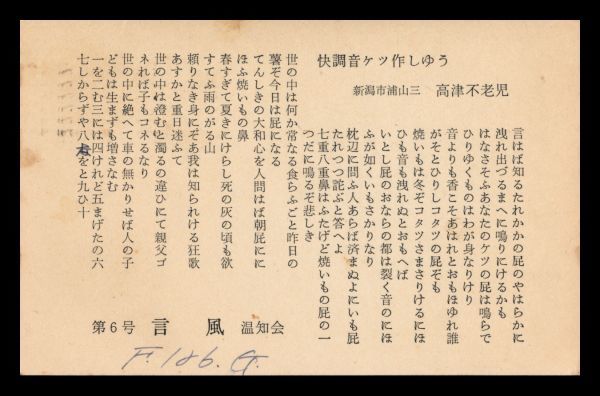 快調音ケツ作しゆう
新潟市浦山三 高津不老児
言はば知るたれかかの屁のやはらかに
洩れ出づるまへに鳴りにけるかも
はなさそふあなたのケツの屁は鳴らで
ひりゆくものはわが身なりけり
音よりも香こそあはれとおもほゆれ誰
がそとひりしコタツの屁ぞも
焼いもは冬ぞコタツさまさりけるにほ
ひも音も洩れぬとおもへば
いとし屁のおならの都は裂く音のにほ
ふが如くいもさかりなり
枕辺に問ふ人あらば済まぬよにいも屁
たれつつ詫ぶと答へよ
七重八重鼻はふたげど焼いもの屁の一
つだに鳴るぞ悲しき
世の中は何か常なる食らふごと昨日の
薯ぞ今日は屁になる
てんしきの大和心を人間はば朝屁にに
ほふ焼いもの鼻
春すぎて夏きにけらし死の灰の頃も欲
すてふ雨のがる山
頼りなき身にぞあ我は知られける狂歌
あすかと重日迷ふて
世の中は澄むと濁るの違ひにて親父ゴ
ネれば子もコネるなり
世の中に絶へて車の無かりせば人の子
どもは生まずも増さなむ
一を二む三には四けれど五まげたの六
七しからずや八をと九ひ十
第6号 言風 温知会
F.186.